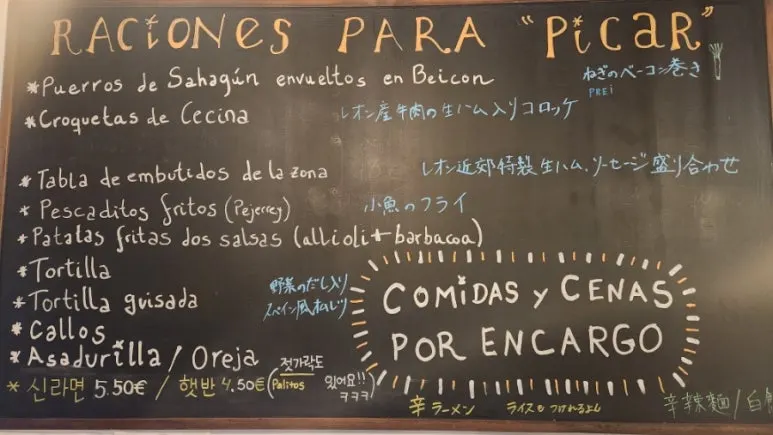 RACiONES PARA "PiCAR"
*Puerros de Sahagún envueltos en Beicon ねぎのベーコン巻き
PREI
*Croquetas de Cecina レオン産牛肉の生ハム入りコロッケ
*Tabla de embutidos de la zona レオン近郊特製生ハム、ソーセージ盛り合わせ
*Pescaditos fritos (Pejerrey) 小魚のフライ
*Patatas fritas dos salsas (allioli + barbacoa)
*Tortilla
*Tortilla guisada 野菜のだし入り
スペイン風オムレツ
*Callos
*Asadurilla / Oreja
*신라면 5.50€ / 햇반 4.50€ (젓가락도
Palitos 있어요!!
ㅋㅋㅋ)
COMiDAS y CENAS
POR ENCARGO
辛ラーメン ライスもつけれるよん
辛辣麵 / 白